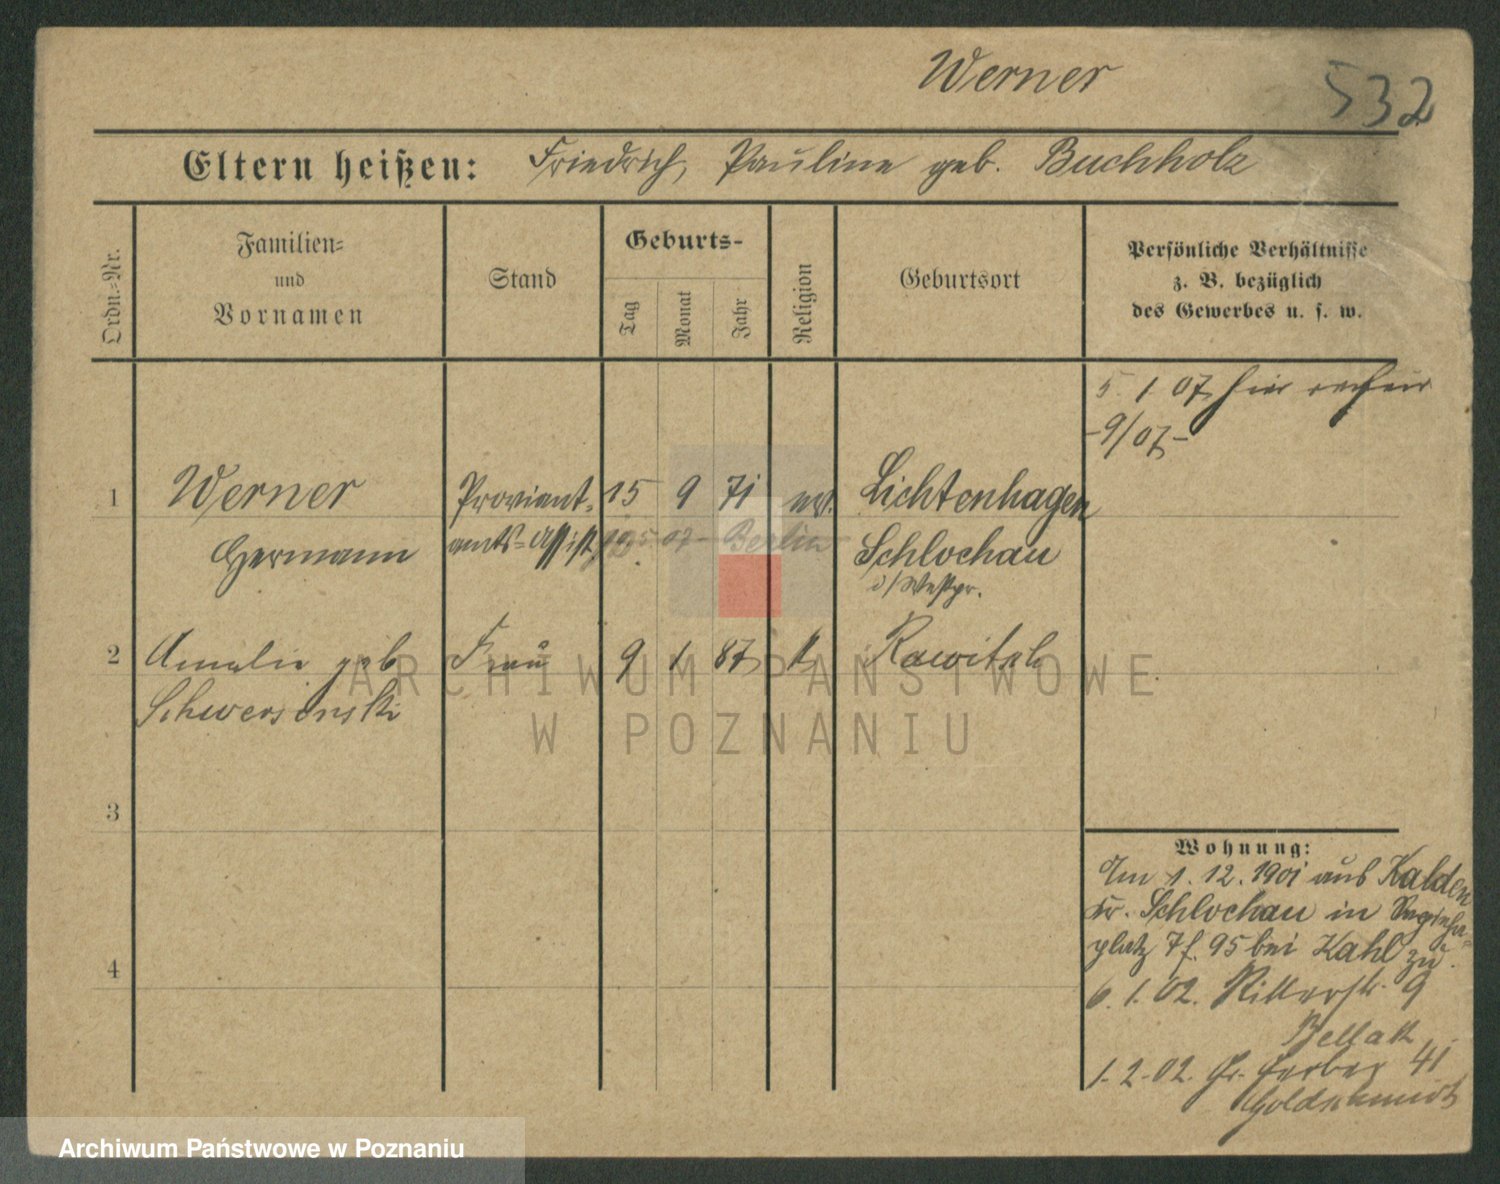 Werner
532
Eltern heißen: Friedrich, Pauline geb. Buchholz
Ordn.-Nr.
Familien-
und
Vornamen
Stand
Geburts-
Tag
Monat
Jahr
Religion
Geburtsort
Persönliche Verhältnisse
z. B. bezüglich
des Gewerbes u. s. w.
5. 1. 07 hier
-9/07-
1 Werner Proviant- 15 9 71 ev. Lichtenhagen
Hermann amts-Assist. 07 Berlin Schlochau
i/Westpr.
2 Amalie geb Frau 9 1 87 k Rawitsch
Schwersenski
3
4
Wohnung:
Im 1. 12. 1901 aus Kalden
Kr. Schlochau in
platz 7 f. 95 bei Kahl zu.
6. 1. 02. Ritterstr. 9
Bellak
1. 2. 02. Gr. Gerber 41
Goldschmidt
ARCHIWUM PAŃSTWOWE
W POZNANIU
Archiwum Państwowe w Poznaniu